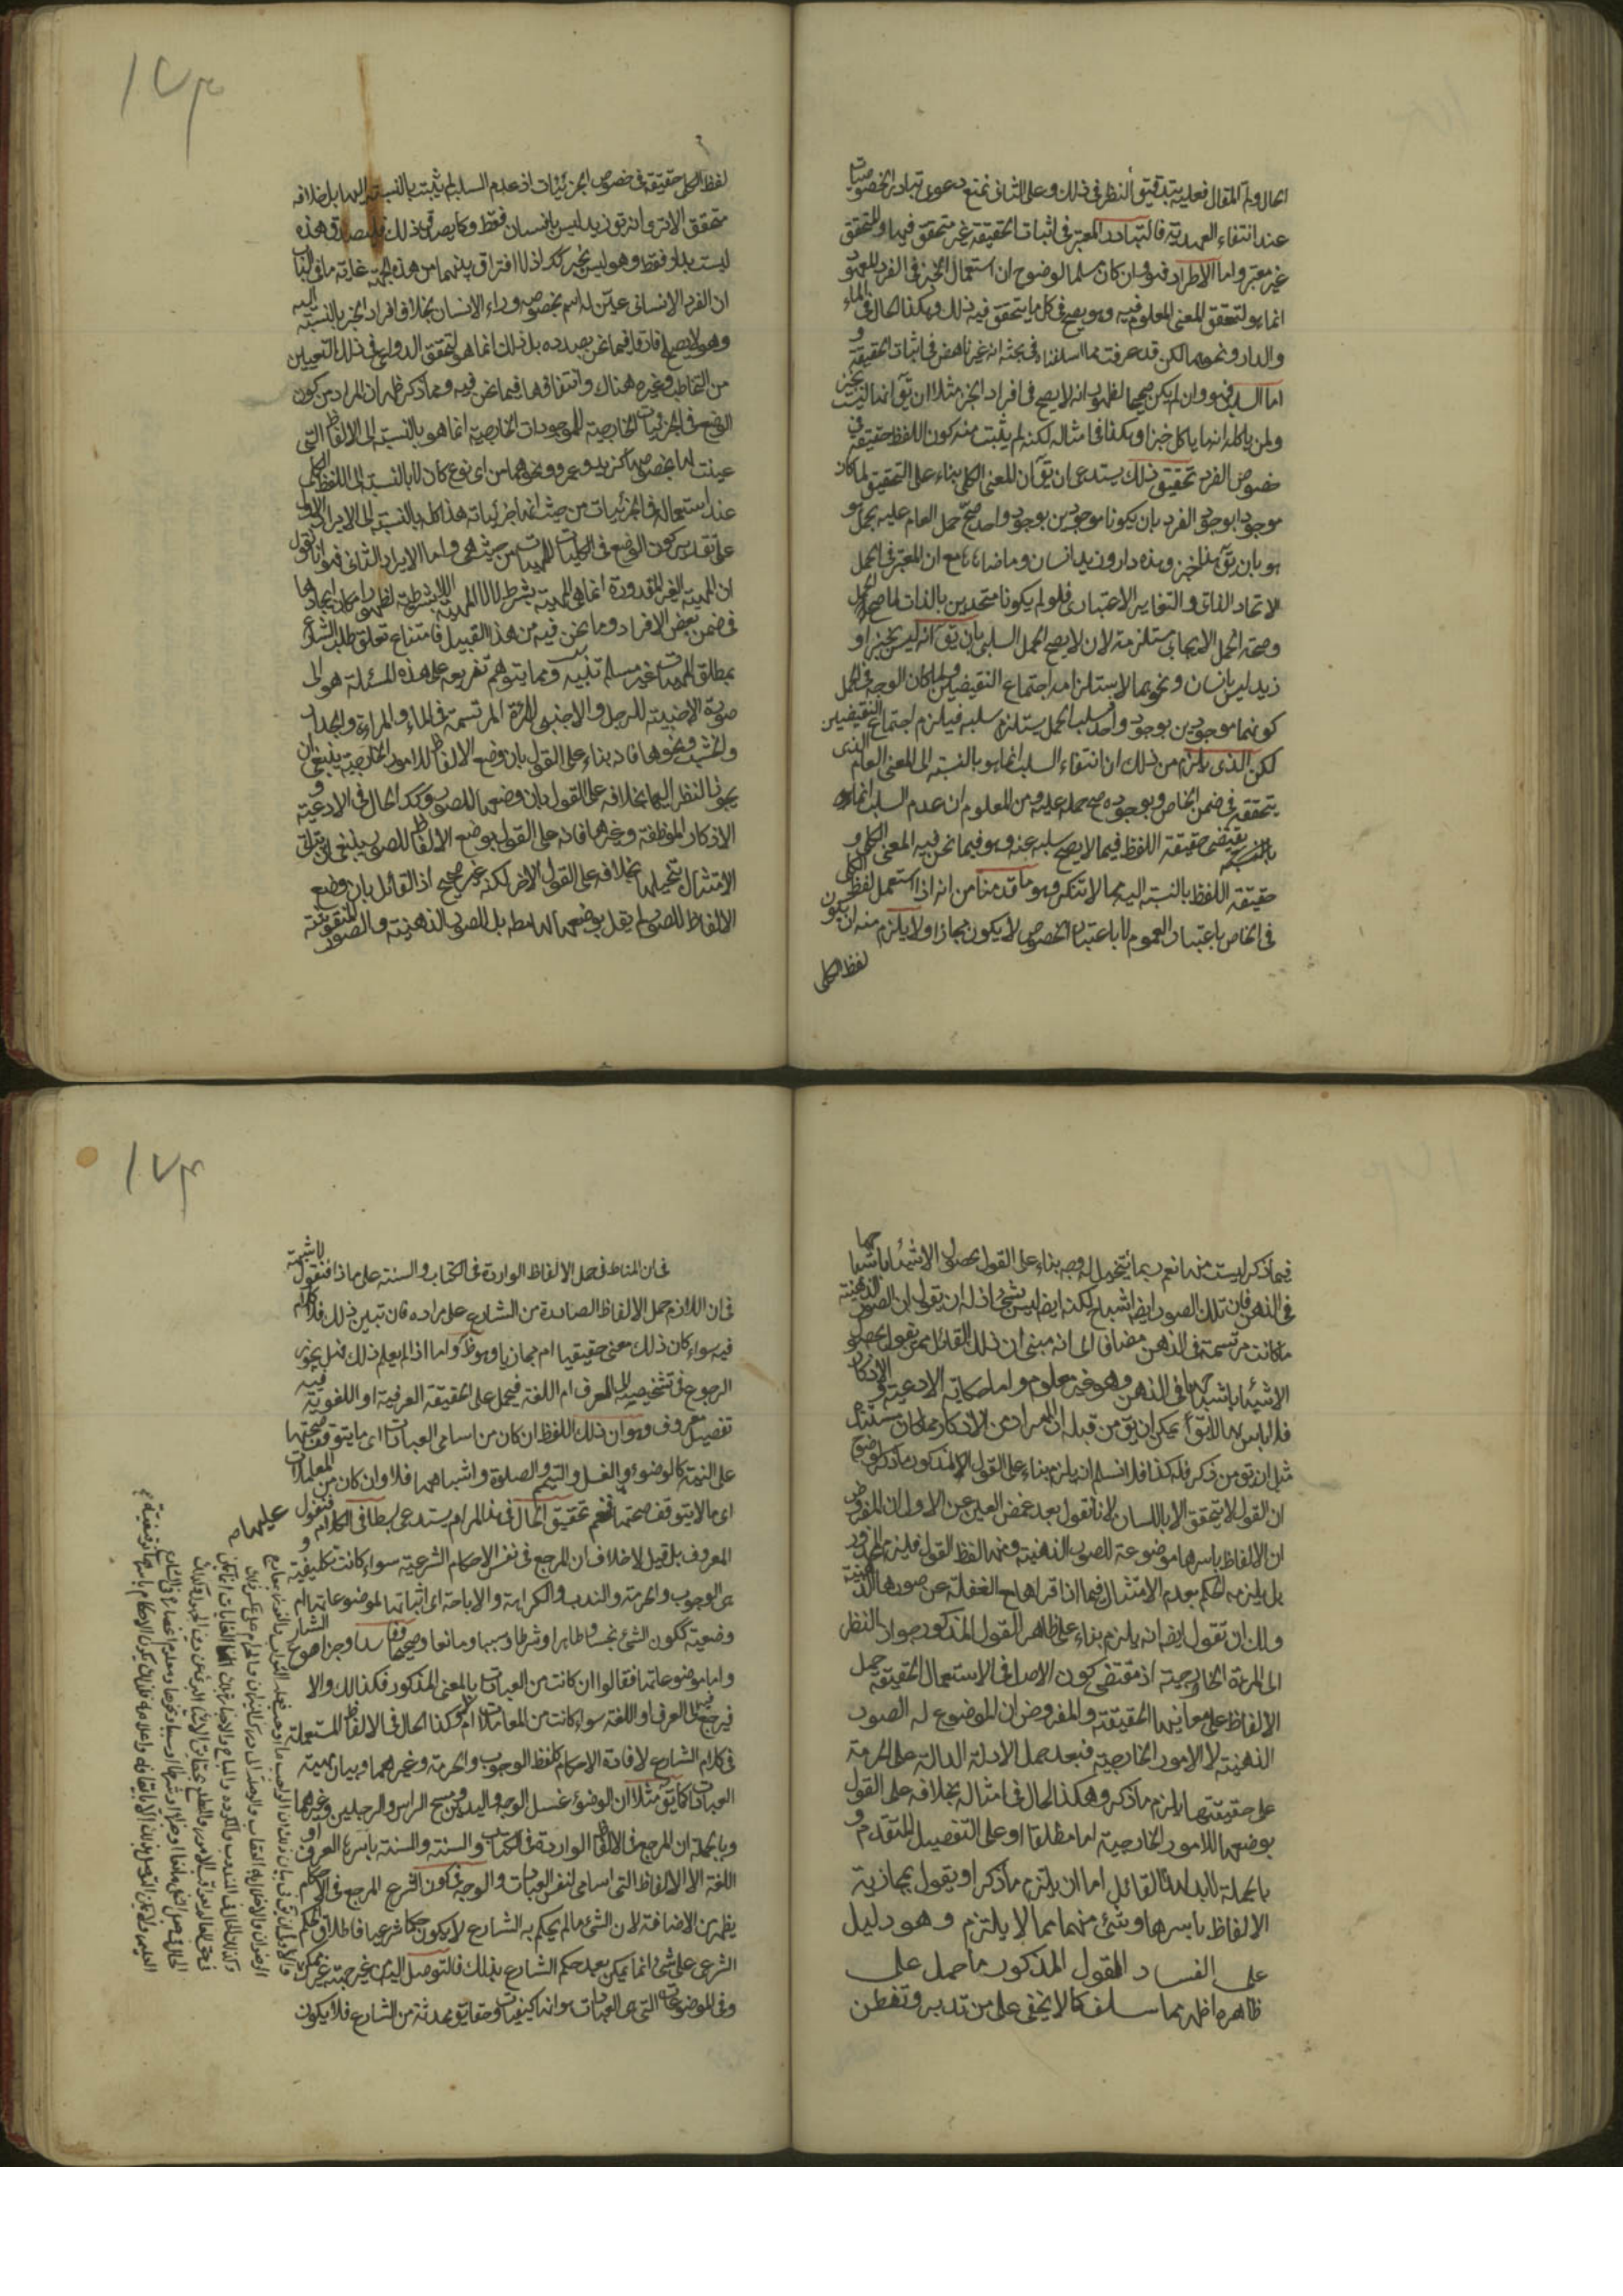 الحال وتم المقال فعليه بتدقيق النظر في ذلك وعلى الثاني نمنع دعوى تبادر الخصوصيات
عند انتفاء العهدية فالتبادر المعتبر في اثبات الحقيقة غير متحقق فيها والمتحقق
غير معتبر واما الاطراد فهو وان كان مسلما لوضوح ان استعمال الخبز في الفرد المعهود
انما هو لتحقق المعنى المعلوم فيه وهو يصح في كل ما يتحقق فيه ذلك وهكذا الحال في الماء
والدار ونحوهما لكن قد عرفت مما اسلفناه في بحثه انه غير ناهض في اثبات الحقيقة و
اما السلب فهو وان لم يكن صحيحا لظهور انه لا يصح في افراد الخبز مثلا ان يق انها ليست بخبز
ولمن ياكله انه ما ياكل خبزا وهكذا في امثاله لكنه لم يثبت منه كون اللفظ حقيقة في
خصوص الفرد تحقيق ذلك يستدعى ان يق ان المعنى الكلى بناء على التحقيق لما كان
موجودا بوجود الفرد بان يكونا موجودين بوجود واحد صح حمل العام عليه بحمل هو
هو بان يق هذا خبز وهذه دار وزيد انسان وما ضاهاه مع ان المعتبر في الحمل
الاتحاد الذاتى والتغاير الاعتبارى فلو لم يكونا متحدين بالذات لما صح الحمل
وصحة الحمل الايجابى مستلزمة لان لا يصح الحمل السلبى بان يق انه ليس بخبز او
زيد ليس بانسان ونحوهما لاستلزامه اجتماع النقيضين ولما كان الوجه في الحمل
كونهما موجودين بوجود واحد فسلب الحمل يستلزم سلبه فيلزم اجتماع النقيضين
لكن الذى يلزم من ذلك ان انتفاء السلب انما هو بالنسبة الى المعنى العام الذى
يتحقق في ضمن الخاص وبوجوده صح حمله عليه ومن المعلوم ان عدم السلب انما هو
يقتضى حقيقة اللفظ فيما لا يصح سلبه عنه وهو فيما نحن فيه المعنى الكلى و
حقيقة اللفظ بالنسبة اليه مما لا تنكر وهو ما قدمنا من انه اذا استعمل لفظ الكلى
في الخاص باعتبار العموم لا باعتبار الخصوص لا يكون مجازا ولا يلزم منه ان يكون
لفظ الكلى
١٧٣
لفظ الكلى حقيقة في خصوص الجزئيات اذ عدم السلب لم يثبت بالنسبة اليها بل خلافه
متحقق الا ترى انه يق زيد ليس بانسان فقط وكما يصدق ذلك فيصدق هذه
ليست بدار فقط وهو ليس بخبز كك اذ لا افتراق بينهما من هذه الجهة غاية ما في الباب
ان الفرد الانسانى عين له اسم بخصوصه وراء الانسان بخلاف افراد الخبز بالنسبة اليه
وهو لا يصح فارقا فيما نحن بصدده بل ذلك انما هو لتحقق الدواعى في ذلك التعيين
من التخاطب وغيره هناك وانتفاؤها فيما نحن فيه ومما ذكر ظهر ان المراد من كون
الوضع في الجزئيات الخارجية للموجودات الخارجية انما هو بالنسبة الى الالفاظ التى
عينت لها بخصوصها كزيد وعمرو ونحوهما من اى نوع كان لا بالنسبة الى اللفظ الكلى
عند استعماله في الجزئيات من حيث انها جزئياته هذا كله بالنسبة الى الايراد الاول
على تقدير كون الوضع في الكليات للمهيات من حيث هى واما الايراد الثانى فهو انا نقول
ان المهية الغير المقدورة انما هى المهية بشرط لا لا المهية اللا بشرطية لظهور امكان ايجادها
في ضمن بعض الافراد وما نحن فيه من هذا القبيل فامتناع تعلق طلب الشارع
بمطلق المهيات غير مسلم تنبيه ومما يتوهم تفريعه على هذه المسئلة هو ان
صورة الاجنبية للرجل والاجنبى للمرءة المرتسمة في الماء والمراءة والجدار
والخشب ونحوها فانه بناء على القول بان وضع الالفاظ للامور الخارجية ينبغى ان
يجوز النظر اليها بخلافه على القول بان وضعها للصور وكك الحال في الادعية و
الاذكار الموظفة وغيرها فانه على القول بوضع الالفاظ للصور ينبغى ان يتاتى
الامتثال بتخيلها بخلافه على القول الاخر لكنه غير صحيح اذ القائل بان وضع
الالفاظ للصور لم يقل بوضعها لها مط بل للصور الذهنية والصور المنقوشة
فيما ذكر ليست منها نعم ربما يتخيل له وجه بناء على القول بحصول الاشياء باشباحها
في الذهن فان تلك الصور ايضا اشباح لكنه ايضا ليس بشئ اذ له ان يقول ان الصور الذهنية
ما كانت مرتسمة في الذهن مضافا الى انه مبنى ان ذلك القائل ممن يقول بحصول
الاشياء باشباحها في الذهن وهو غير معلوم واما حكاية الادعية و الاذكار
فلا باس بها لا يق يمكن ان يق من قبله ان المراد من الاذكار ما كان مستندا
مثل ان يق من ذكر فله كذا فلا نسلم ان يلزم بناء على القول المذكور ما ذكر لوضوح
ان القول لا يتحقق الا باللسان لانا نقول بعد غمض العين عن الاول ان المفروض
ان الالفاظ باسرها موضوعة للصور الذهنية ومنها لفظ القول فيلزم المحذور
بل يلزمه الحكم بعدم الامتثال فيما اذا قراها مع الغفلة عن صورها الذهنية
ولك ان تقول ايضا انه يلزم بناء على ظاهر القول المذكور جواز النظر
الى المرءة الخارجية اذ مقتضى كون الاصل في الاستعمال الحقيقة حمل
الالفاظ على معانيها الحقيقة والمفروض ان الموضوع له الصور
الذهنية لا الامور الخارجية فبعد حمل الادلة الدالة على الحرمة
على حقيقتها يلزم ما ذكر وهكذا الحال في امثاله بخلافه على القول
بوضعها للامور الخارجية اما مطلقا او على التفصيل المتقدم و
بالجملة لابد لهذا القائل اما ان يلتزم ما ذكر او يقول بمجازية
الالفاظ باسرها وشئ منهما مما لا يلتزم وهو دليل
على الفساد القول المذكور ما حمل على
ظاهره اظهر مما سلف كما لا يخفى على من تدبر وتفطن
١٧٤
في ان المناط في حمل الالفاظ الواردة في الكتاب والسنة على ماذا فنقول لا شبهة
في ان اللازم حمل الالفاظ الصادرة من الشارع على مراده فان تبين ذلك فلا كلام
فيه سواء كان ذلك معنى حقيقيا ام مجازيا وهو ظ واما اذا لم يعلم ذلك فهل يجوز
الرجوع في تشخيصه الى العرف ام اللغة فيحمل على الحقيقة العرفية او اللغوية فيه
تفصيل معروف وهو ان ذلك اللفظ ان كان من اسامى العبادات اى ما يتوقف صحتها
على النية كالوضوء والغسل والتيمم والصلوة واشباهها فلا وان كان من المعاملات
اى ما لا يتوقف صحتها فنعم تحقيق الحال في هذا المرام يستدعى بسطا في الكلام فنقول
المعروف بل قيل لا خلاف ان المرجع في نفس الاحكام الشرعية سواء كانت تكليفية و
هى الوجوب والحرمة والندب والكراهة والاباحة اى اثباتها لموضوعاتها ام
وضعية ككون الشئ نجسا وطاهرا وشرطا وسببا ومانعا وصحيحا وفاسدا وجزا هو الشارع
واما موضوعاتها فقالوا ان كانت من العبادات بالمعنى المذكور فكذلك والا
فيرجع فيها الى العرف او اللغة سواء كانت من المعاملات ام لا وكذا الحال في الالفاظ المستعملة
في كلام الشارع لافادة الاحكام كلفظ الوجوب والحرمة وغيرهما وبيان مهية
العبادات كما يق مثلا ان الوضوء غسل الوجه واليدين ومسح الراس والرجلين وغيرها
وبالجملة ان المرجع في الالفاظ الواردة في الكتاب والسنة والسنة باسرها العرف او
اللغة الا الالفاظ التى اسامى لنفس العبادات والوجه في كون الشرع المرجع في الاحكام
يظهر من الاضافة لان الشئ ما لم يحكم به الشارع لا يكون حكما شرعيا فاطلاق الحكم
الشرعى على شئ انما يمكن بعد حكم الشارع بذلك فالتوصل اليه من غير جهته غير ممكن
وفي الموضوعات التى هى العبادات هو انها كيفيات وحقايق محدثة من الشارع فلا يكون